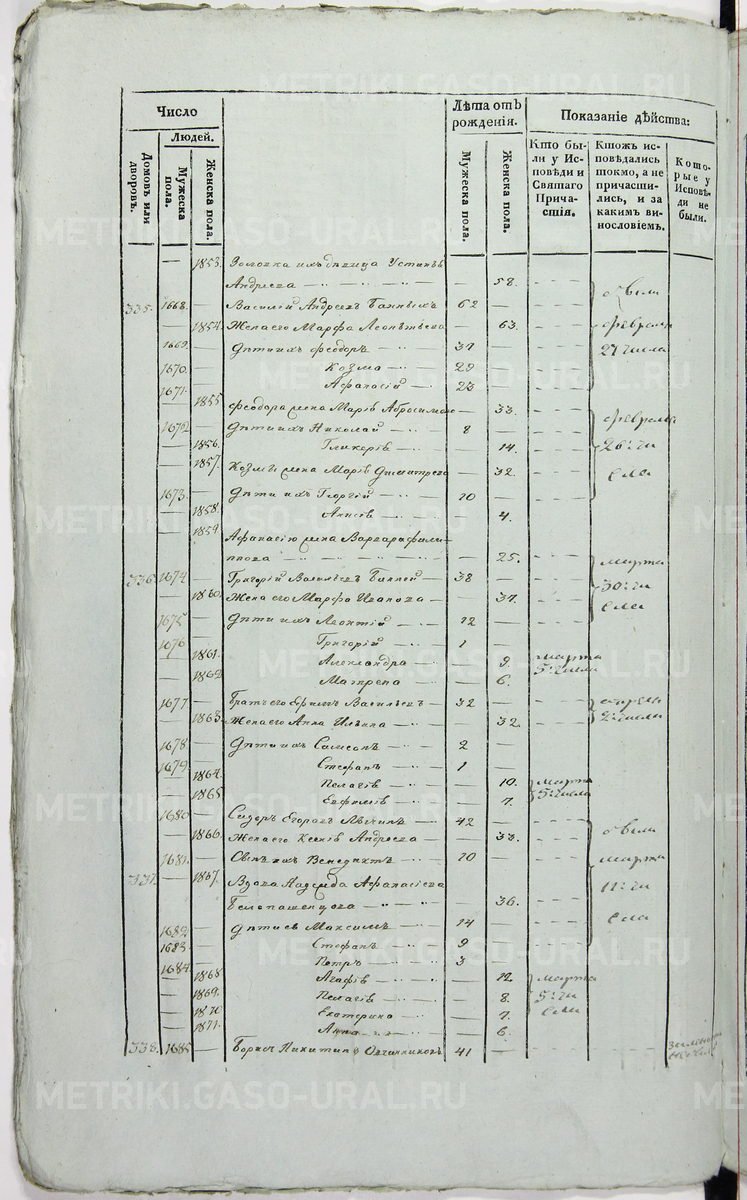 Число
Лѣта отъ рожденія.
Показаніе дѣйства:
Людей.
Домовъ или дворовъ.
Мужеска пола.
Женска пола.
Мужеска пола.
Женска пола.
Кто были у Исповѣди и Святаго Причастія.
Ктожъ исповѣдались токмо, а не причастились, и за какимъ винословіемъ.
Которые у Исповѣди не были.
— 1853. Золовка ихъ дѣвица Устинья
Андреева — 58.
335. 1668. — Василій Андреевъ Банныхъ — 62 —
— 1854. Жена его Марфа Леонтьева — 63.
1669. — Дѣти ихъ Феодоръ — 37 —
1670. — Козма — 29 —
1671. — Афанасій — 23 —
— 1855 Феодора жена Марія Абросимова — 33.
1672 — Дѣти ихъ Николай — 8 —
— 1856. Гликерія — 14.
— 1857. Козмы жена Марія Дмитрева — 32.
1673. — Дѣти ихъ Георгій — 10 —
— 1858. — 4.
— 1859. Афанасія жена Варвара Фили-
ппова — 25.
336. 1674. — Григорій Васильевъ — 38 —
— 1860. Жена его Марфа Иванова — 37.
1675 — Дѣти ихъ Леонтій — 12 —
1676 — Григорій — 1 —
— 1861. Александра — 9.
— 1862 Матрена — 6.
1677 — Братъ его Васильевъ — 32 —
— 1863. Жена его Анна Ильина — 32.
1678 — Дѣти ихъ Самсонъ — 2 —
1679 — Стефанъ — 1 —
— 1864. Пелагія — 10.
— 1865 Евфимія — 7.
1680 — Сидоръ Егоровъ — 42 —
— 1866. Жена его Ксенія Андреева — 33.
1681. — Сынъ ихъ Венедиктъ — 10 —
337. — 1867. Вдова Надежда Афанасіева
Белопашенцова — 36.
1682 — Дѣти ея Максимъ — 14 —
1683 — Стефанъ — 9 —
1684 — Петръ — 3 —
— 1868 Агафія — 12
— 1869. Пелагія — 8.
— 1870 Екатерина — 7.
— 1871. Анна — 6.
338. 1685 — Никитинъ Овчинниковъ — 41 —
февраля
27 числа
февраля
26 чи
сла
марта
30 чи
сла
марта
5 числа
2 числа
марта
5 числа
марта
11 чи
сла
марта
5 чи
сла
METRIKI.GASO-URAL.RU